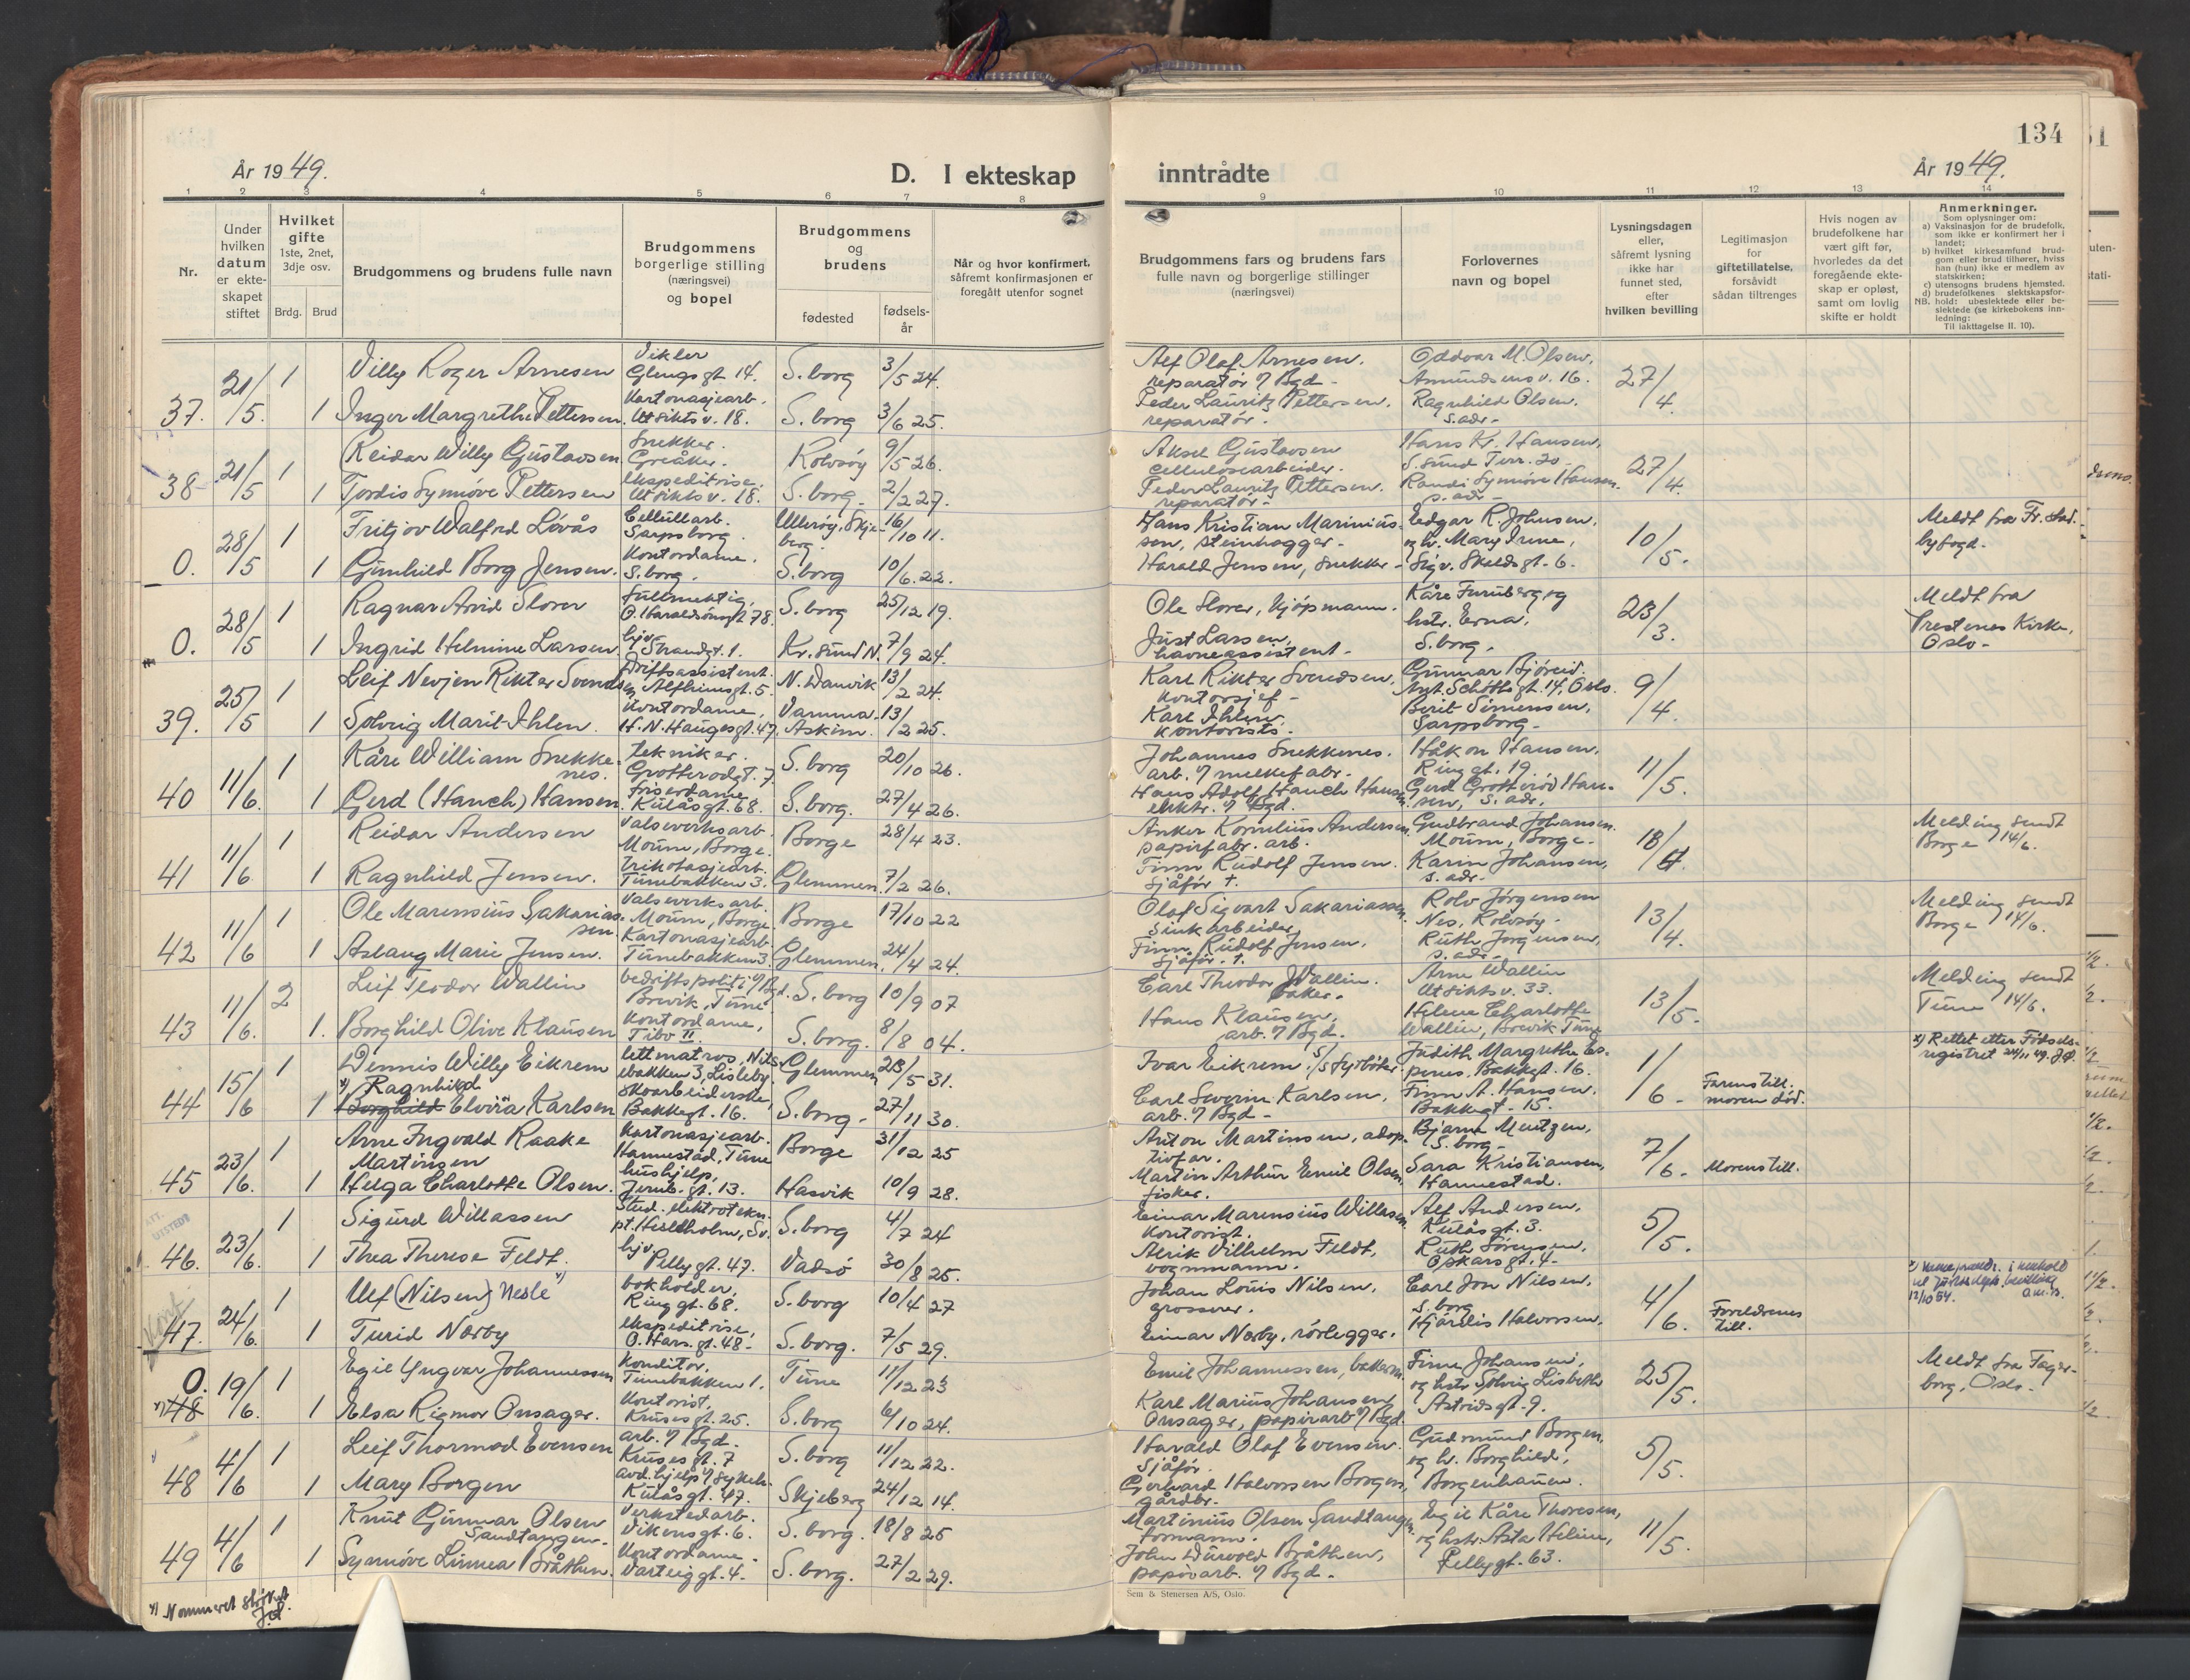 134
År 1949.
D. I ekteskap inntrådte
År 1949.
1 2 3 4 5 6 7 8 9 10 11 12 13 14
Nr.
Under hvilken datum er ekteskapet stiftet
Hvilket gifte 1ste, 2net, 3dje osv.
Brdg. Brud
Brudgommens og brudens fulle navn
Brudgommens borgerlige stilling (næringsvei) og bopel
Brudgommens og brudens
fødested
fødselsår
Når og hvor konfirmert, såfremt konfirmasjonen er foregått utenfor sognet
Brudgommens fars og brudens fars fulle navn og borgerlige stillinger (næringsvei)
Forlovernes navn og bopel
Lysningsdagen eller, såfremt lysning ikke har funnet sted, efter hvilken bevilling
Legitimasjon for giftetillatelse, forsåvidt sådan tiltrenges
Hvis nogen av brudefolkene har vært gift før, hvorledes da det foregående ekteskap er opløst, samt om lovlig skifte er holdt
Anmerkninger.
Som oplysninger om:
a) Vaksinasjon for de brudefolk, som ikke er konfirmert her i landet;
b) hvilket kirkesamfund brudgom eller brud tilhører, hviss han (hun) ikke er medlem av statskirken;
c) utensogns brudens hjemsted.
d) brudefolkenes slektskapsforhold: ubeslektede eller beslektede (se kirkebokens innledning:
NB.
Til iakttagelse II. 10).
37. 21/5. 1 Villy Roger Arnesen Vikler Glengsgt 14. S.borg 3/5 24. Alf Olaf Arnesen, reparatør v/ Bgd - Oddvar M. Olsen, Amundsens v. 16. 27/4.
1 Inger Margrethe Pettersen. Kartonasjearb. Utsikts v. 18. S.borg 3/6 25. Peder Lauritz Pettersen, reparatør. Ragnhild Olsen. s.adr-
38- 21/5 1 Reidar Willy Gustavsen Snekker. Greåker. Rolvsøy 9/5 26. Aksel Gustavsen cellulosearbeider. Hans Kr. Hansen, S.sund Terr. 20- 27/4.
1 Tordis Synnøve Pettersen ekspeditrise. Utsikts v. 18. S.borg- 2/2 27. Peder Lauritz Pettersen. reparatør- Randi Synnøve Hansen. s.adr-
0. 28/5 1 Fritjov Walfrd Løvås Cellullarb. Sarpsborg. Ullerøy, Skjeberg. 16/10 11. Hans Kristian Mariniussen, steinhogger- Edgar R. Johnsen, og hr. Mary Irene, Sigv. Skaldsgt. 6. 10/5. Meldt fra Fr.stad. byfogd-
1 Gunhild Borg Jensen. Kontordame. S.borg. S.borg 10/6. 22. Harald Jensen, snekker-
0. 28/5 1 Ragnar Arvid Slorer fullmektig, O. Haraldsønsgt 78. S.borg 25/12 19. Ole Slorer, kjøpmann. Kåre Furuberg og hstr. Erna, S.borg. 23/3. Meldt fra Trestenes Kirke, Oslo-
1 Ingrid Helmine Larsen. hjv. Strandgt. 1. Kr.sund N. 7/9 24. Just Larsen, havneassistent-
39. 25/5 1 Leif Nevjen Rikter Svendsen driftsassistent. Alfheimsgt. 5. N. Wanvik 13/2 24. Karl Rikter Svendsen, kontorsjef- Gunnar Bjøreid. Ant. Schøttsgt. 14, Oslo. 9/4.
1 Solveig Marit Ihlen. Kontordame, H.N. Haugesgt. 47. Vamma. Askim. 13/2 25. Karl Ihlen. kontorists. Berit Simensen, Sarpsborg-
40 11/6. 1 Kåre William Snekkenes. tekniker. Grotterødgt. 7. S.borg 20/10 26. Johannes Snekkenes. arb. v/ melkefabr- Håkon Hansen. Ringgt. 19. 11/5.
1 Gerd (Hauch) Hansen. frisørdame Kulåsgt. 68. S.borg. 27/4 26. Hans Adolf Hauch Hansen. elektr. v/ Bgd. Gerd Grotterød Hansen, s. adr.
41 11/6 1 Reidar Andersen valseverksarb. Moum, Borge. Borge 28/4 23. Anker Kornelius Andersen. papirfabr. arb. Gudbrand Johansen. Moum, Borge- 18/4. Melding sendt Borge 14/6.
1 Ragnhild Jensen. trikotasjearb. Tunebakken 3. Glemmen. 7/2 26. Finn Rudolf Jensen. sjåfør †. Karin Johansen, s. adr-
42 11/6 1 Ole Marensius Sakariassen. valseverksarb. Moum, Borge. Borge 17/10 22 Olaf Sigvart Sakariassen. Sinkarbeider, Rolv Jørgensen Nes, Rolvsøy- 13/4. Melding sendt Borge 14/6.
1 Aslaug Marie Jensen. Kartonasjearb. Tunebakken 3. Glemmen. 24/4 24. Finn Rudolf Jensen. sjåfør- †. Ruth Jørgensen, s. adr-
43 11/6. 2 Leif Teodor Wallin bedriftspoliti v/ Bgd. Brevik, Tune. S.borg 10/9 07 Carl Theodor Wallin. baker- Arne Wallin Utsikts v. 33. 13/5. Melding sendt Tune 14/6.
1. Borghild Olive Klausen Kontordame, Tibo II. S.borg. 8/8 04. Hans Klausen, arb. v/ Bgd- Helene Charlotte Wallin, Brevik Tune
44 15/6 1 Dennis Willy Eikrem lettmatros, Nilsebakken 3, Lisleby. Glemmen 23/5 31. Ivar Eikrem, s/s fyrbøter. Judith Margrethe Espenes. Bakkegt. 16. 1/6- Farens till. moren død. x) Rettet etter Fødselsregistret 24/11 49. J.Ø.
1 x) Ragnhild Borghild Elvira Karlsen Skoarbeiderske, Bakkegt. 16. S.borg- 27/11 30. Carl Severin Karlsen, arb. v/ Bgd- Finn A. Hansen. Bakkegt- 15.
45 23/6. 1 Arne Ingvald Raake Martinsen Kartonasjearb. Hannestad, Tune Borge 31/12 25 Anton Martinsen, adoptivfar. Bjarne Mentzen, S. borg- 7/6- Morens till.
1 Helga Charlotte Olsen. hushjelp, Jernb.gt. 13. Hasvik 10/9 28. Martin Arthur Emil Olsen. fisker. Sara Kristiansen, Hannestad.
ATT. UTSTEDT
46. 23/6. 1 Sigurd Willassen Stud. elektrotekn. pt. Hessleholm, Sv. S.borg 4/7 24 Einar Marensius Willassen. Kontorist. Alf Andersen, Kulåsgt. 3. 5/5.
1 Thea Therese Feldt. hjv. Pellygt. 47. Vadsø 30/8 25. Alrik Vilhelm Feldt, vognmann. Ruth Sørensen, Oskarsgt. 4-
47. 24/6. 1 Ulf (Nilsen) Nesle x) bokholder, Ringgt. 68. S.borg 10/4 27 Johan Louis Nilsen, grosserer. Carl Jon Nilsen, S.borg 4/6. Foreldrenes till. 12/10 54.
1 Turid Nørby ekspeditrise, O. Hars.gt. 48- S.borg. 7/5 29. Einar Nørby, rørlegger. Hjørdis Halvorsen.
0. x) 48 19/6. 1 Egil Yngvar Johannessen Konditor, Tunebakken 1. Tune 11/12 23 Emil Johannessen, bakerm. Finn Johansen, og hstr. Solveig Lisbeth Astridsgt. 9. 25/5. Meldt fra Fagerborg, Oslo-
1 Elsa Rigmor Onsager. Kontorist, Krusesgt. 25. S.borg 6/10 24. Karl Marius Johansen Onsager, papirarb v/ Bgd.
48 4/6 1 Leif Thormod Evensen arb. v/ Bgd- Krusesgt. 7 S.borg 11/12 22. Harald Olaf Evensen. Sjåfør. Gudmund Borgen, og hr. Borghild, Borgenhaugen. 5/5.
1 Mary Borgen avd.hjelp v/ sykeh. Kulåsgt. 47. Skjeberg 24/12 14. Gerhard Halvorsen Borgen, gårdbr-
49 4/6 1 Knut Gunnar Olsen Sandtangen- Verkstedarb. Vikensgt. 6. S.borg. 18/8 25 Martinius Olsen Sandtangen. formann. Egil Kåre Thoresen, og hstr. Asta Helene, Pellygt. 63. 11/5.
1 Synnøve Linnea Bråthen. Kontordame- Varteiggt. 4. S.borg. 27/2 29. John Durvold Bråthen, papirarb. v/ Bgd-
x) Nommeret strøket J.Ø.
Sem & Stenersen A/S, Oslo.